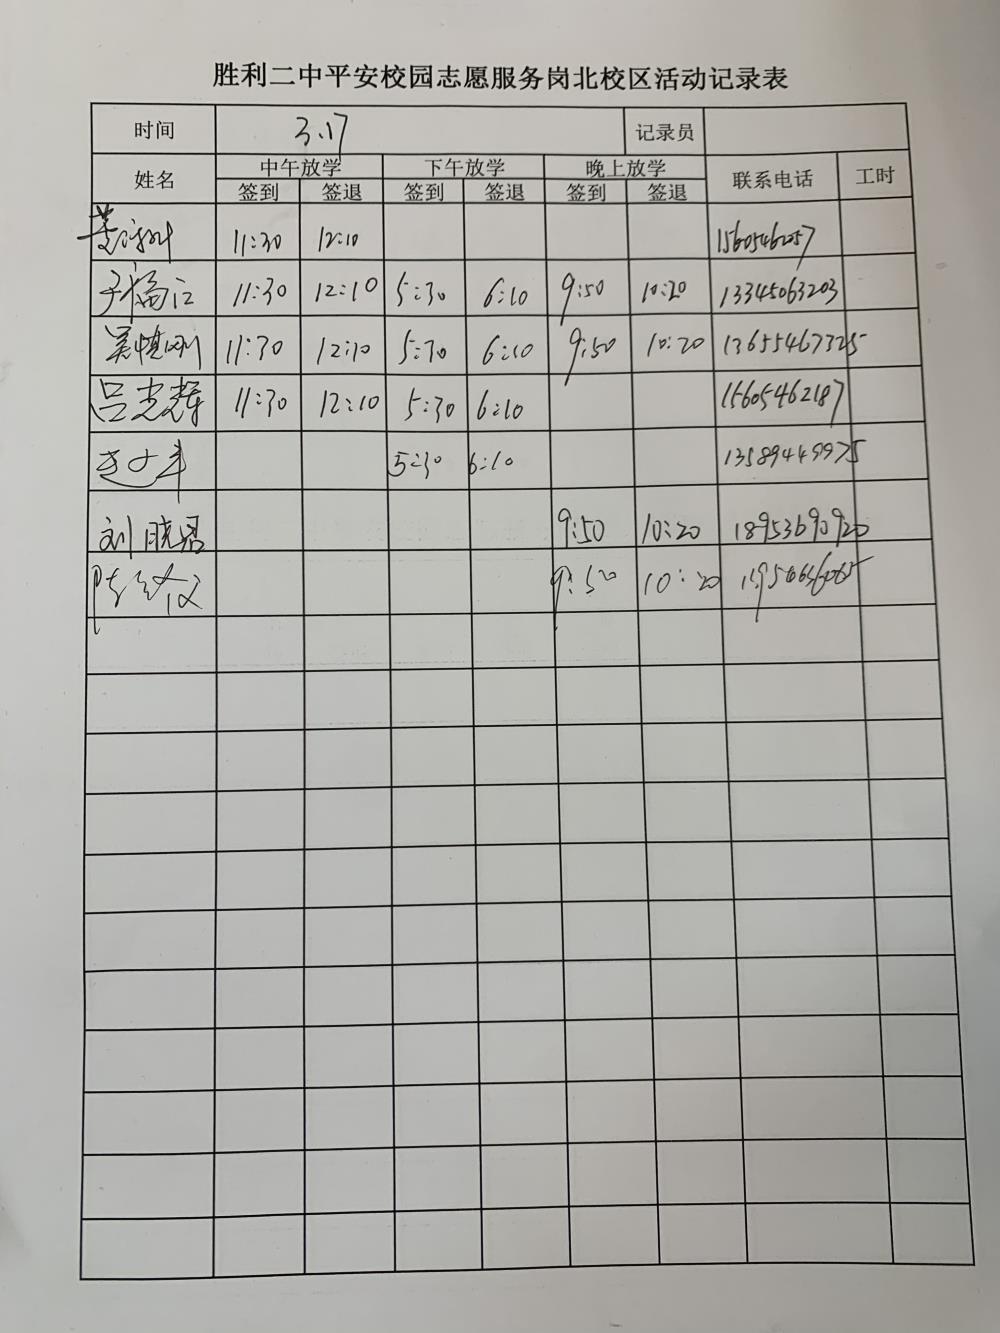 胜利二中平安校园志愿服务岗北校区活动记录表
时间 3.17 记录员
姓名 中午放学 下午放学 晚上放学 联系电话 工时
签到 签退 签到 签退 签到 签退
11:30 12:10
于福江 11:30 12:10 5:30 6:10 9:50 10:20 13345063203
吴慎刚 11:30 12:10 5:30 6:10 9:50 10:20 13655467325
吕光辉 11:30 12:10 5:30 6:10 15605462187
5:30 6:10 13589449975
刘晓磊 9:50 10:20 18953690920
9:50 10:20